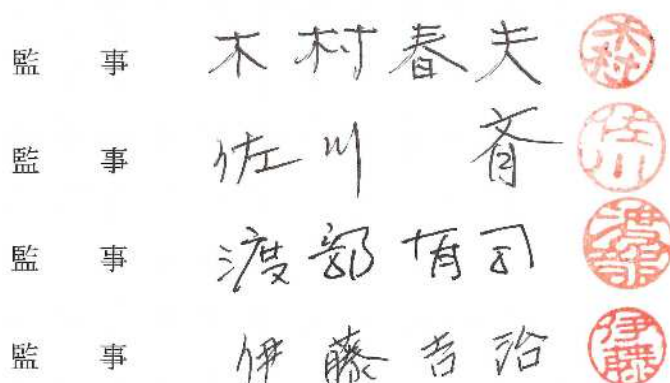 監 事 木村春夫 木村
監 事 佐川 斉 佐川
監 事 渡部 司 渡部
監 事 伊藤吉治 伊藤